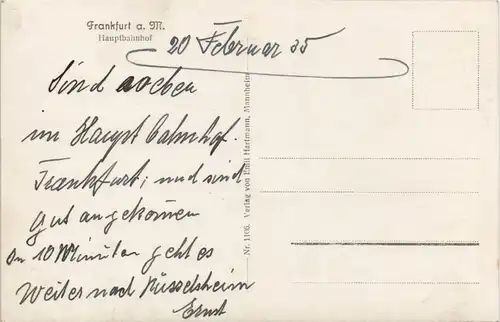 Frankfurt a. M.
Hauptbahnhof
20 Februar 35
Sind soeben
im Haupt Bahnhof.
Frankfurt; und sind
gut angekomen
In 10 Minuten geht es
Weiter nach Rüsselsheim
Ernst
Nr. 1106. Verlag von Emil Hartmann, Mannheim